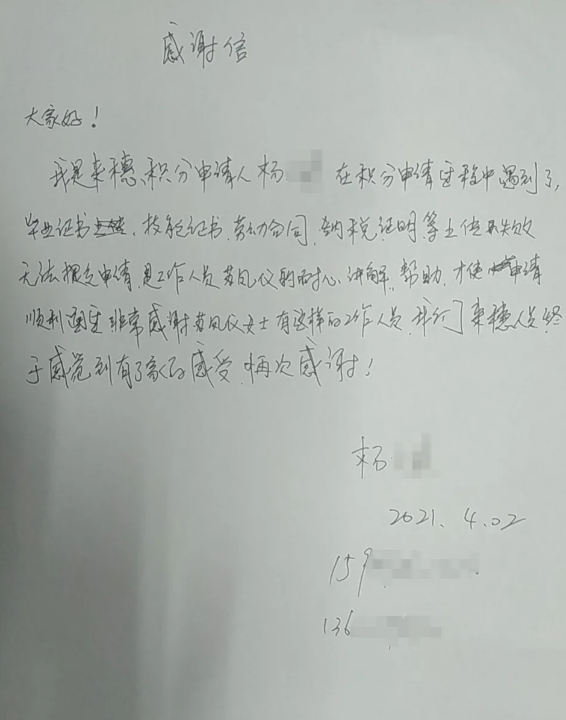 感谢信
大家好！
我是来穗积分申请人杨 在积分申请过程中遇到了,
毕业证书、技能证书、劳动合同、纳税证明等上传失败
无法提交申请,是工作人员苏凤仪的耐心讲解,帮助,才使申请
顺利 非常感谢苏凤仪女士有这样的工作人员,我们来穗人员终
于感觉到有了家的感受,再次感谢！
杨
2021.4.02
159
136